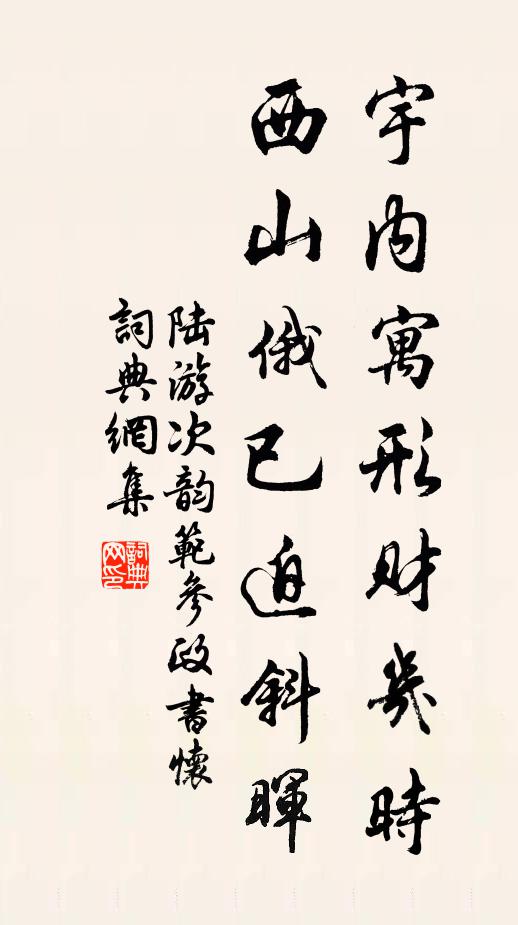 宇内寓形财幾時
西山俄已迫斜暉
陆游次韵範參政書懷
詞典網集
詞典网印